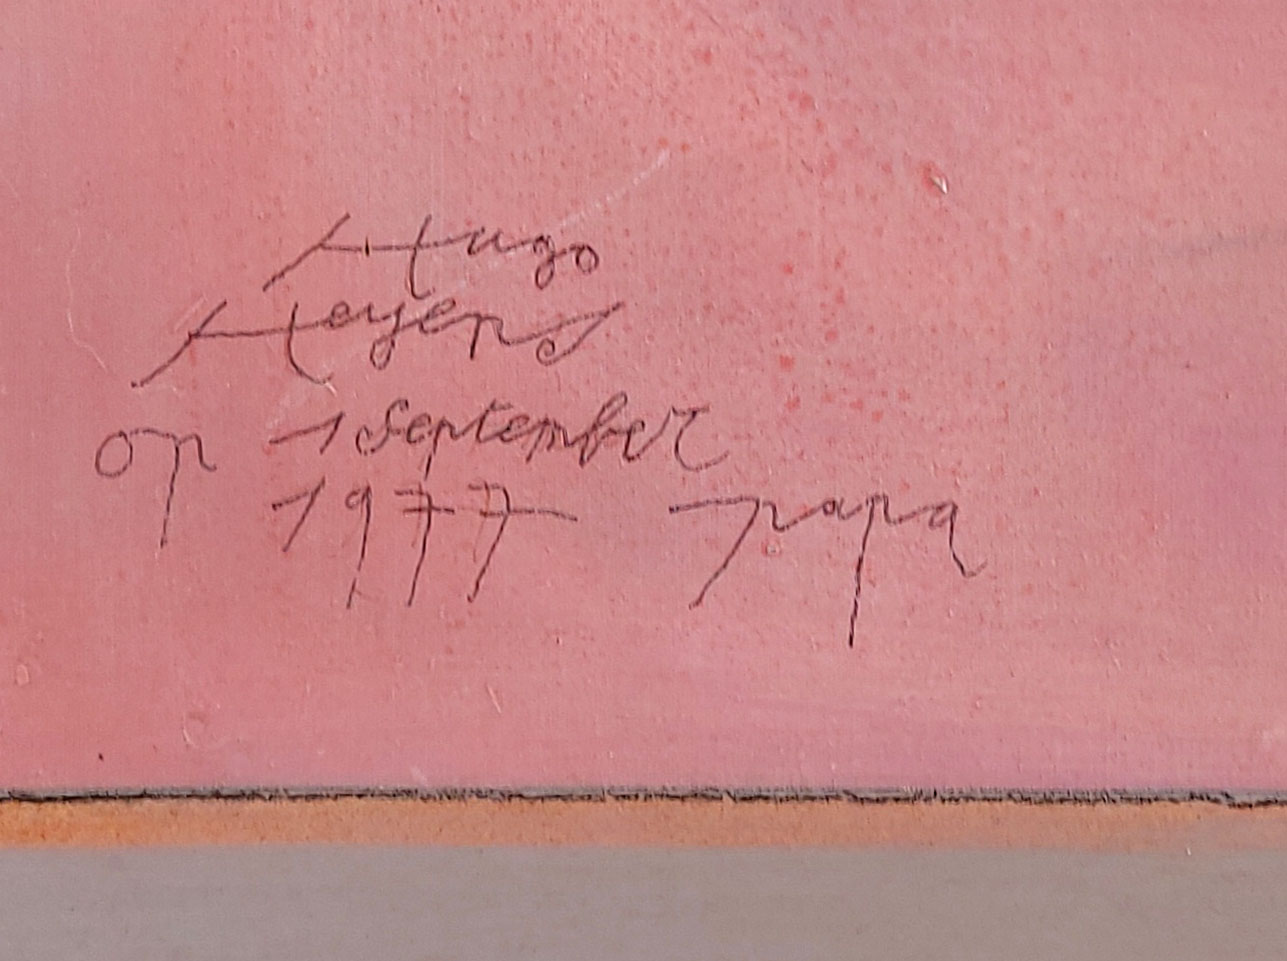 Hugo
Heyens
op 1 September
1977 papa